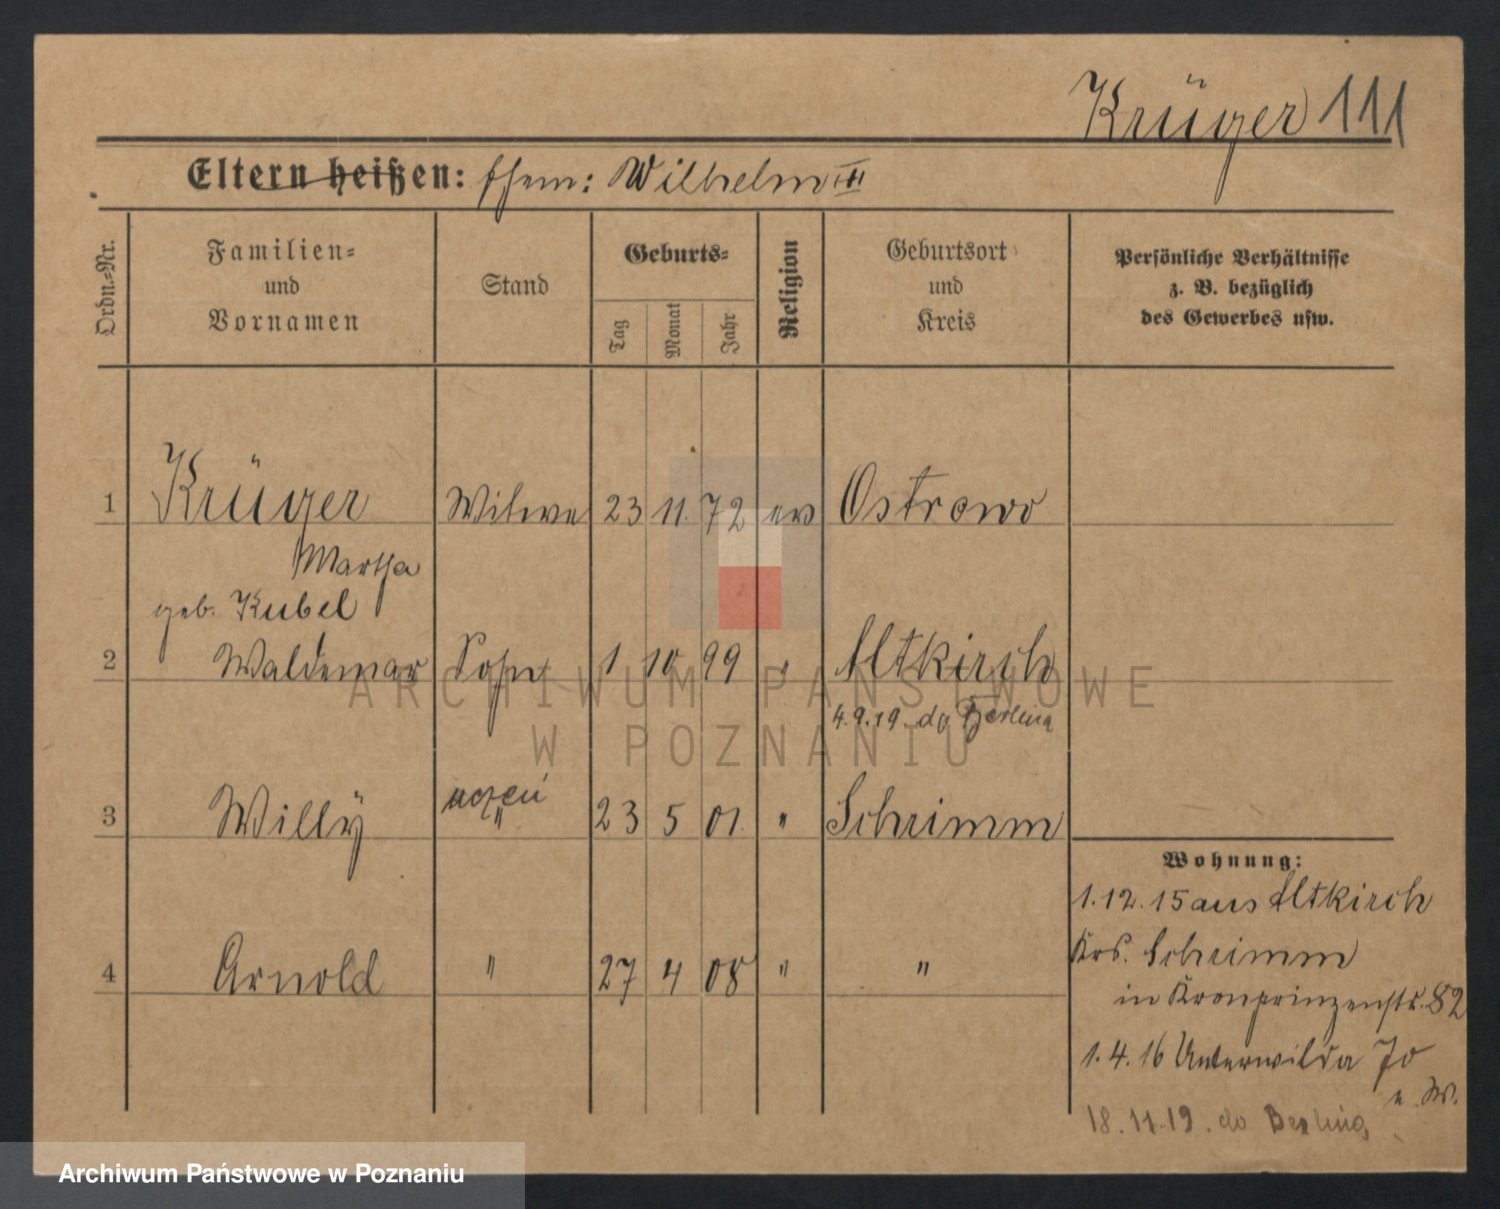 Krüger 111
Eltern heißen: Ehem: Wilhelm III
Ordn.-Nr.
Familien-
und
Vornamen
Stand
Geburts-
Tag
Monat
Jahr
Religion
Geburtsort
und
Kreis
Persönliche Verhältnisse
z. B. bezüglich
des Gewerbes usw.
1 Krüger Witwe 23 11. 72 ev Ostrowo
Martha
geb. Kubel
2 Waldemar Sohn 1 10 99 " Altkirch
4.9.19. do Berlina
uczeń
3 Willy " 23 5 01. " Schrimm
Wohnung:
1.12.15 aus Altkirch
Krs. Schrimm
4 Arnold " 27 4 08 " "
in Kronprinzenstr. 82
1.4.16 Unterwilda 70
b. W.
18.11.19. do Berlina
ARCHIWUM PAŃSTWOWE
W POZNANIU
Archiwum Państwowe w Poznaniu